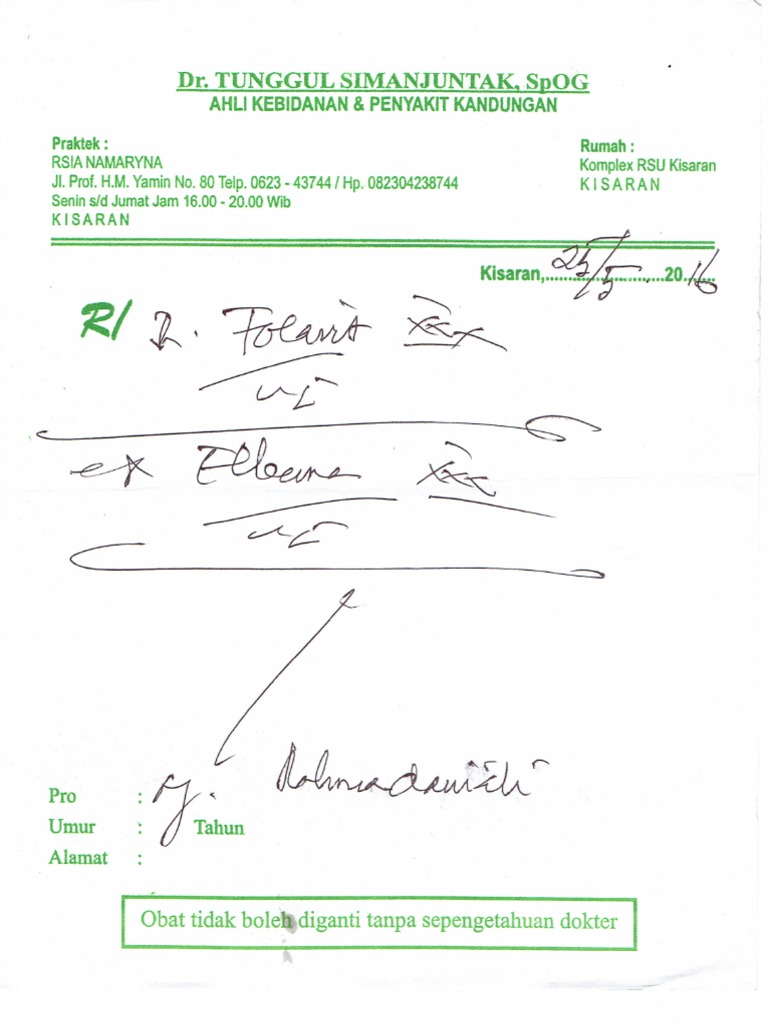 Dr. TUNGGUL SIMANJUNTAK, SpOG
AHLI KEBIDANAN & PENYAKIT KANDUNGAN
Praktek :
RSIA NAMARYNA
Jl. Prof. H.M. Yamin No. 80 Telp. 0623 - 43744 / Hp. 082304238744
Senin s/d Jumat Jam 16.00 - 20.00 Wib
KISARAN
Rumah :
Komplex RSU Kisaran
KISARAN
Kisaran, 25/5 2016
R/ Folavit xxx
Elbana xxx
Pro : Ny.
Umur : Tahun
Alamat :
Obat tidak boleh diganti tanpa sepengetahuan dokter